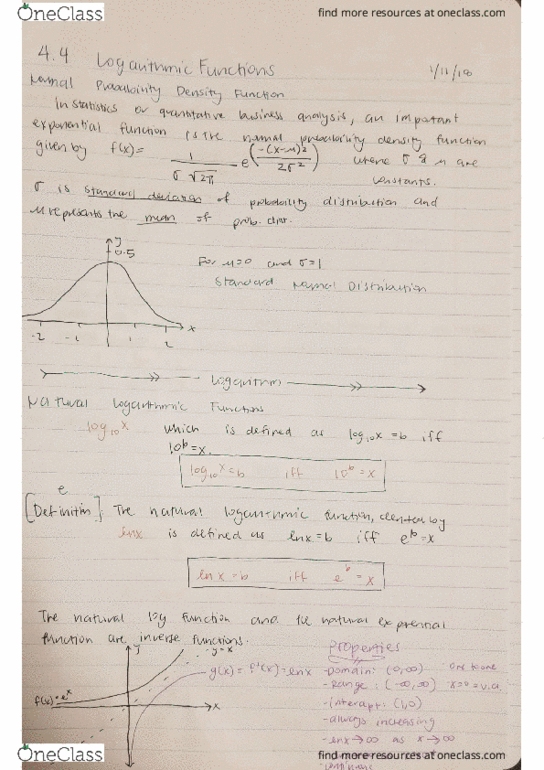 OneClass
find more resources at oneclass.com
4.4 Logarithmic Functions
1/11/18
Normal Probability Density Function
In statistics or quantitative business analysis, an important
exponential function is the normal probability density function
given by f(x)= 1/(σ√2π) e^(-(x-μ)²/2σ²) where σ & μ are
constants.
σ is standard deviation of probability distribution and
μ represents the mean of prob. distr.
y
0.5
For μ=0 and σ=1
Standard Normal Distribution
x
-2 -1 1 2
Logarithm
Natural Logarithmic Functions
log₁₀x which is defined as log₁₀x = b iff
10ᵇ=x.
log₁₀x=b iff 10ᵇ=x
e
[Definition] The natural logarithmic function, denoted by
lnx is defined as lnx=b iff eᵇ=x
ln x = b iff eᵇ = x
The natural log function and the natural exponential
function are inverse functions.
y
y=x
Properties
g(x) = f⁻¹(x)=lnx
-Domain: (0,∞) one to one
f(x)=eˣ
x
-Range: (-∞,∞) x=0=v.a.
-intercept: (1,0)
-always increasing
-lnx→∞ as x→∞
OneClass
find more resources at oneclass.com
continuous